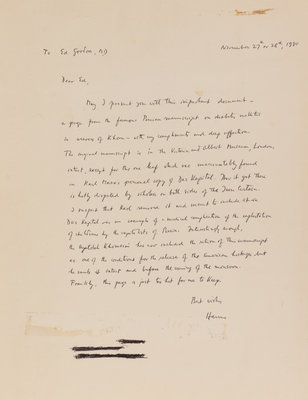 To Ed Gordon, MD
November 27th or 28th, 1980
Dear Ed,
May I present you with this important document –
a page from the famous Persian manuscript on diabetes mellitus
in of Khan – with my compliments and deep affection.
The original manuscript is in the Victoria and Albert Museum, London,
intact, except for this one leaf which was unaccountably found
in Karl Marx's personal copy of Das Kapital. How it got there
is hotly disputed by scholars on both sides of the Iron Curtain.
I suspect that Karl removed it and meant to include it in
Das Kapital as an example of a medical complication of the exploitation
of by the capitalists of Persia. Interestingly enough,
the Ayatollah Khomeini has now included the return of this manuscript
as one of the conditions for the release of the American hostages, but
he wants it intact and before the coming of the monsoon.
Frankly, this page is just too hot for me to keep.
Best wishes,